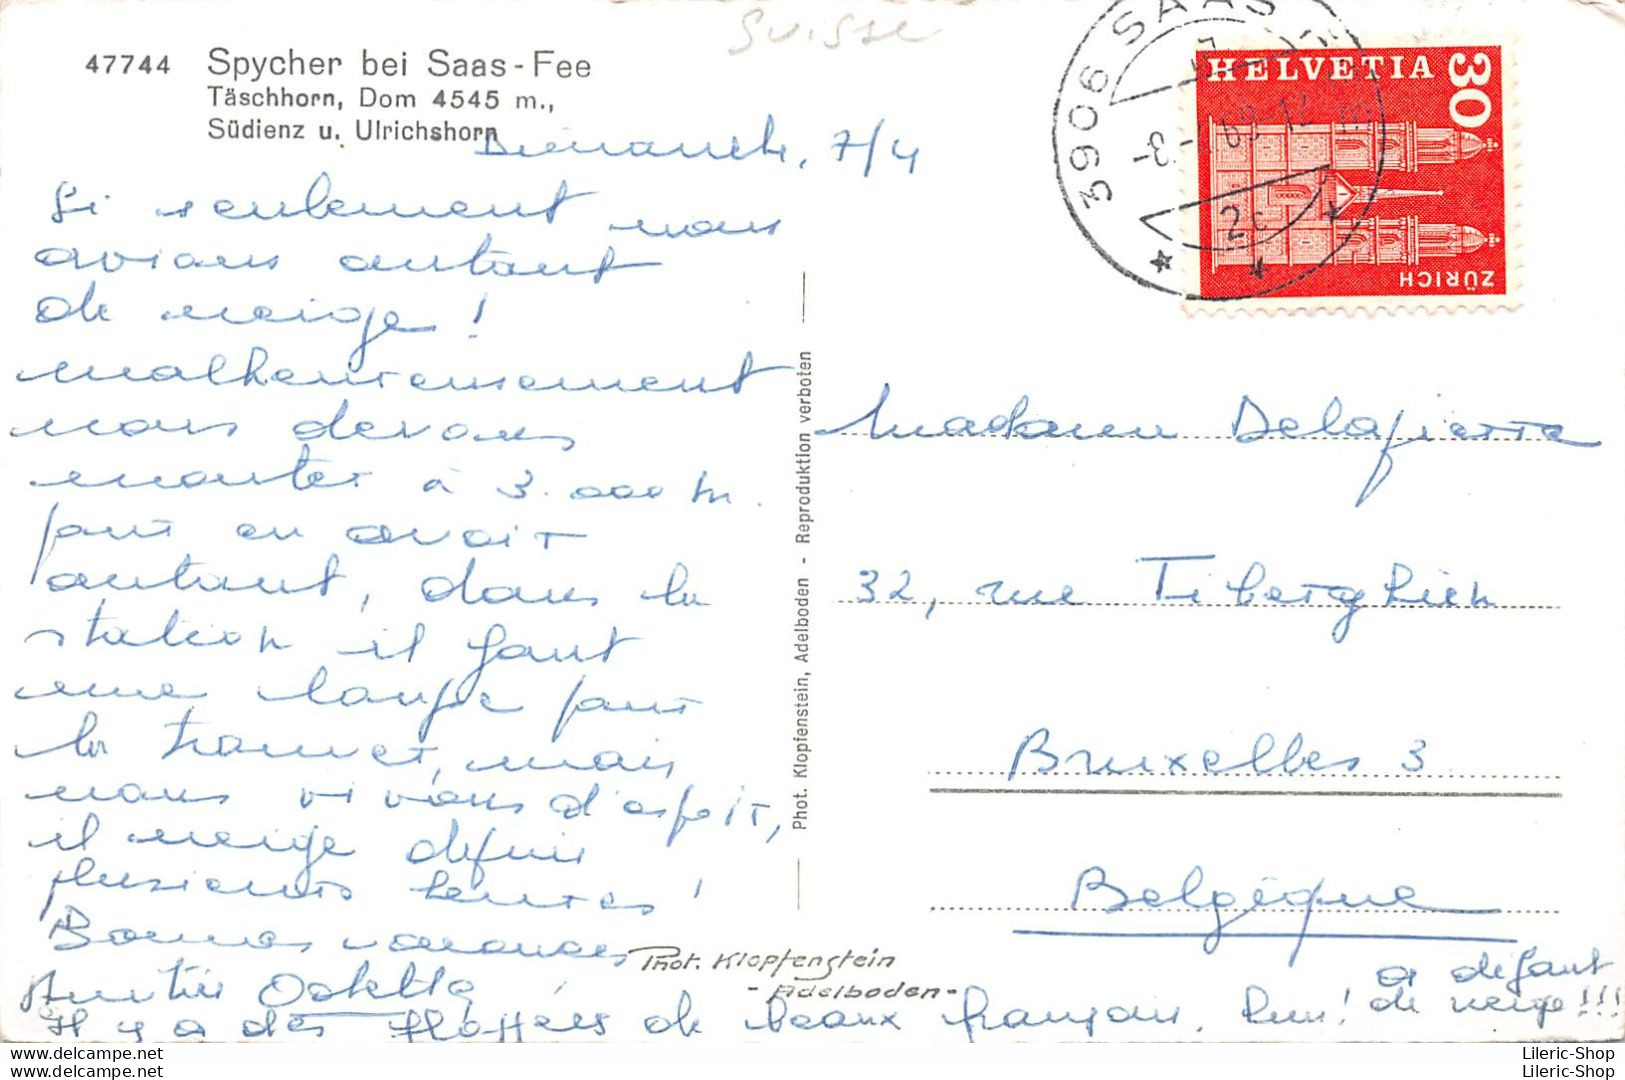 Suisse
47744 Spycher bei Saas-Fee
Täschhorn, Dom 4545 m.,
Südlenz u. Ulrichshorn
Dimanche, 7/4
Si seulement nous
avions autant
de neige !
malheureusement
nous devons
monter à 3.000 m.
pour en avoir
autant, dans la
station il faut
une loupe pour
la trouver, mais
nous vivons d'espoir,
il neige depuis
plusieurs heures !
Bonnes vacances
Amitiés
Il y a des de beaux français, hum ! à défaut
de neige !!!
Phot. Klopfenstein
- Adelboden -
Phot. Klopfenstein, Adelboden - Reproduktion verboten
3906 SAAS-FEE
2c
HELVETIA
30
ZÜRICH
Madame Delapierre
32, rue Tiberghien
Bruxelles 3
Belgique
Lileric-Shop
Lileric-Shop
www.delcampe.net
www.delcampe.net